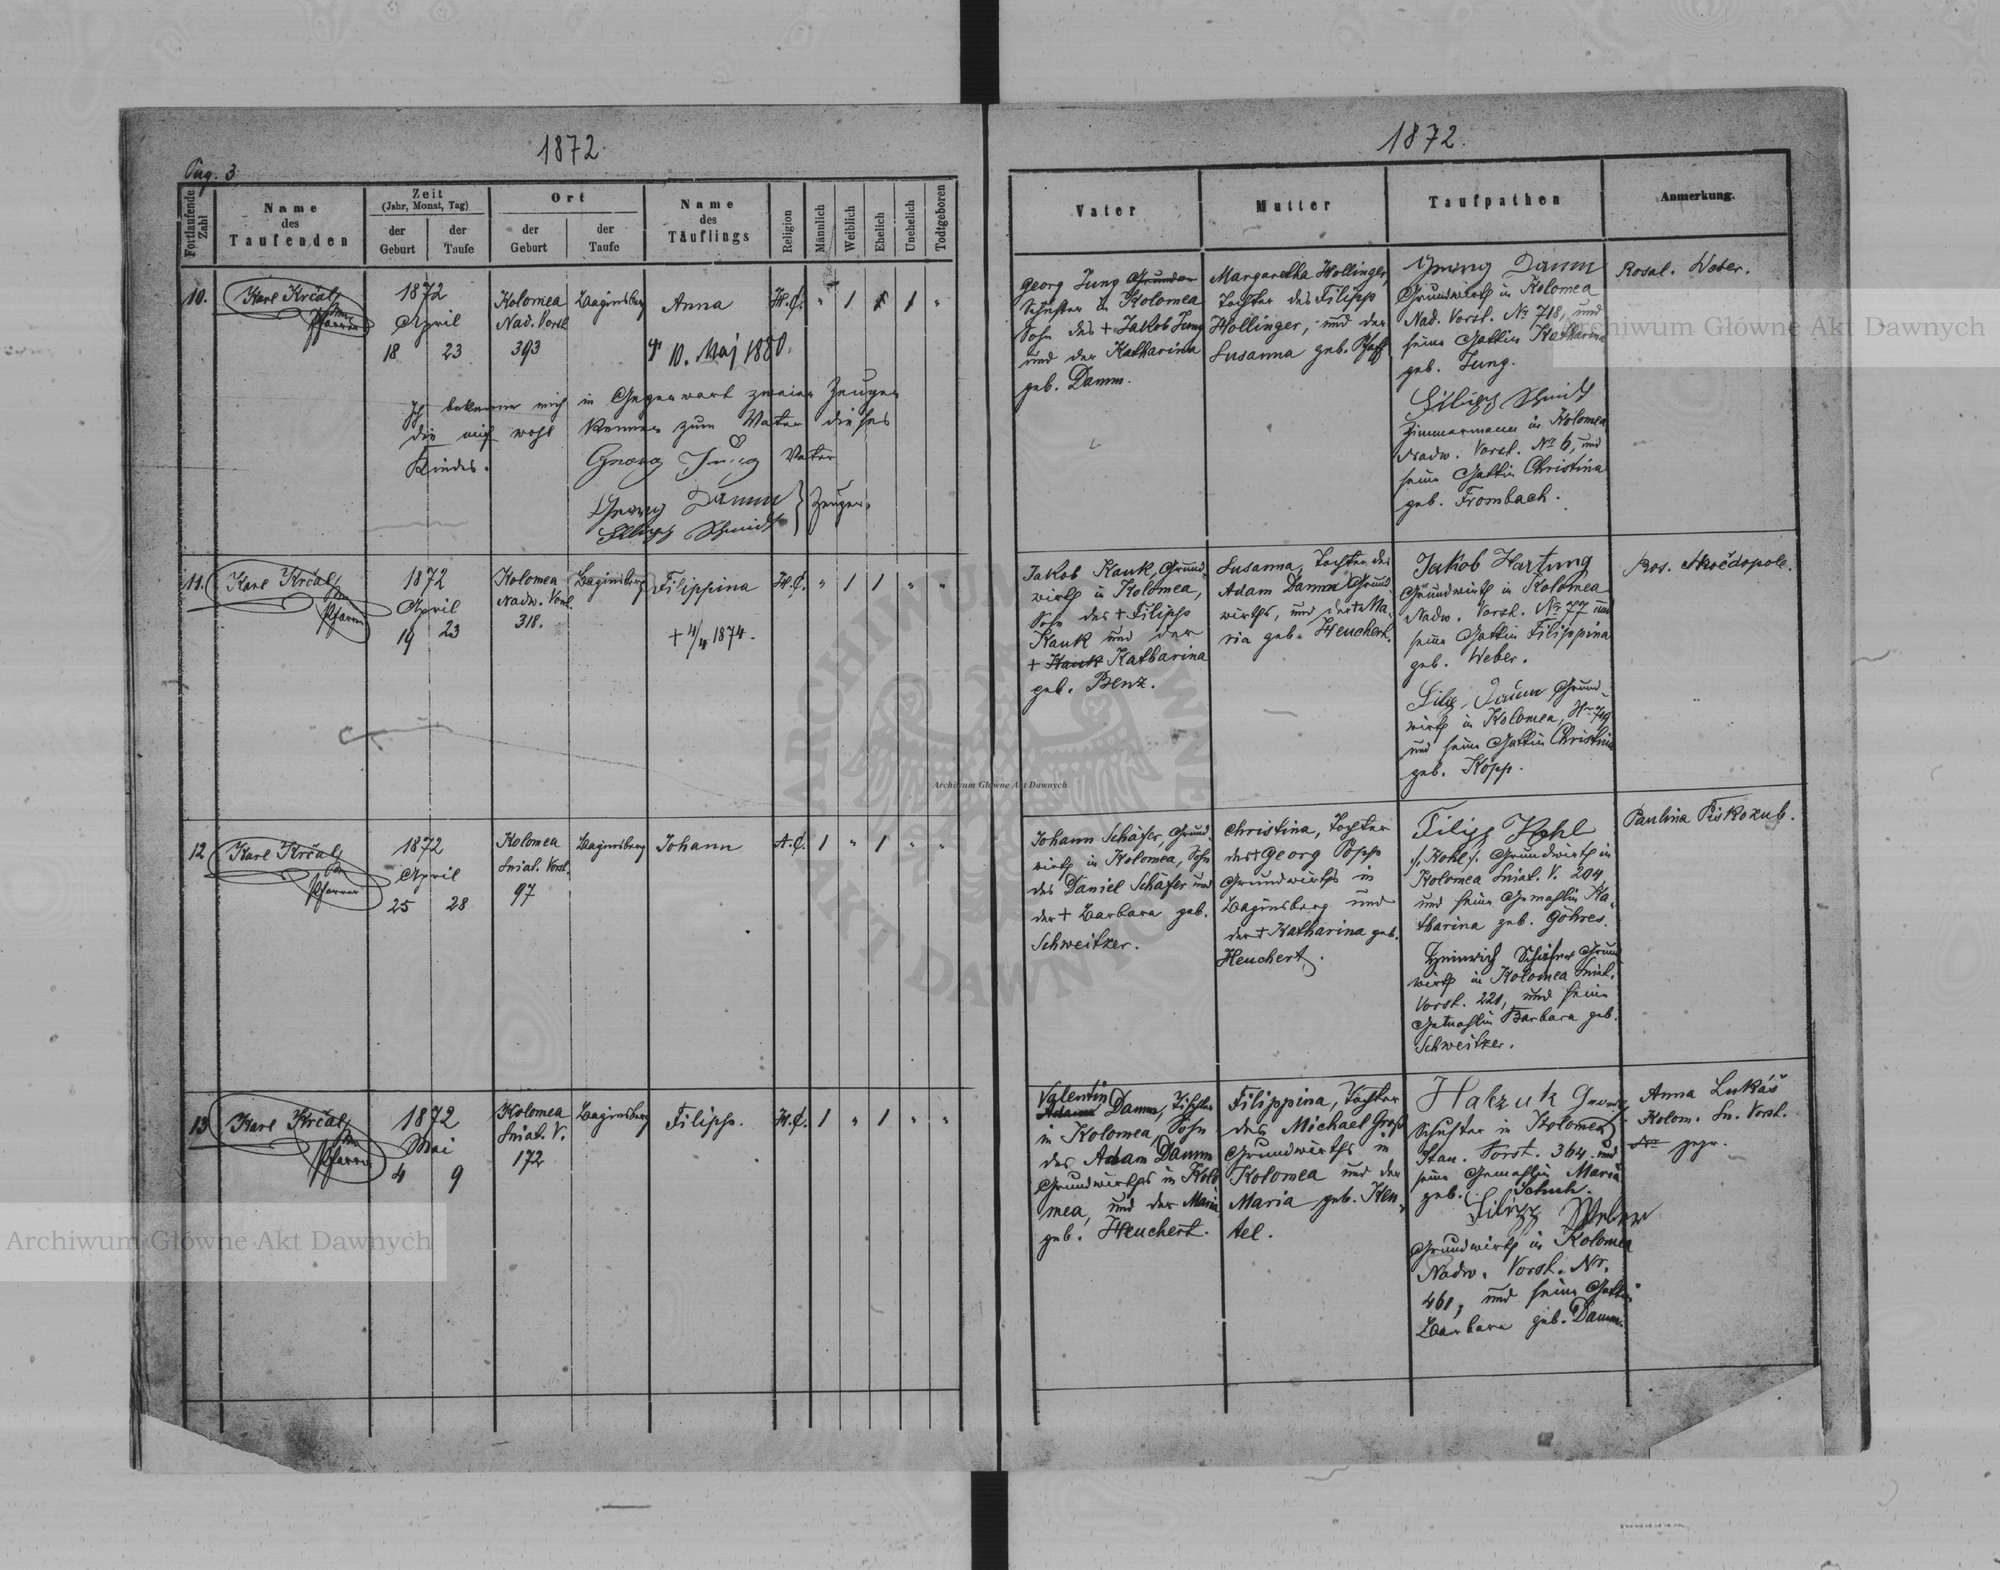 1872.
Pag. 3
Fortlaufende Zahl
Name des Taufenden
Zeit
(Jahr, Monat, Tag)
der Geburt
der Taufe
Ort
der Geburt
der Taufe
Name des Täuflings
Religion
Männlich
Weiblich
Ehelich
Unehelich
Todtgeboren
10.
Karl Krčal
Pfarrer
1872
April
18 23
Kolomea
Nad. Vorst.
393
Baginsberg
Anna
H. C.
" / / / "
† 10. Maj 1880.
Ich bekenne mich in Gegenwart zweier Zeugen
die mich wohl kennen zum Vater dieses
Kindes.
Georg Jung Vater
Georg Damm
Filipp Schmidt
Zeugen.
11.
Karl Krčal
Pfarrer
1872
April
19 23
Kolomea
Nadw. Vorst.
318.
Baginsberg
Filippina
† 4/4 1874.
H. C.
" / / " "
12
Karl Krčal
Pfarrer
1872
April
25 28
Kolomea
Sniat. Vorst.
97
Baginsberg
Johann
A. C.
/ " / " "
13
Karl Krčal
Pfarrer
1872
Mai
4 9
Kolomea
Sniat. V.
172
Baginsberg
Filipp.
H. C.
/ " / " "
1872.
Vater
Mutter
Taufpathen
Anmerkung.
Georg Jung
Schuster in Kolomea
Sohn des † Jakob Jung
und der Katharina
geb. Damm.
Margaretha Hollinger,
Tochter des Filipp
Hollinger, und der
Susanna geb. Pfaff
Georg Damm
Grundwirth in Kolomea
Nad. Vorst. No 718, und
seine Gattin Katharina
geb. Jung.
Filipp Schmidt
Zimmermann in Kolomea
Nadw. Vorst. No 6, und
seine Gattin Christina
geb. Frombach.
Rosal. Weber.
Jakob Kauk, Grund-
wirth in Kolomea,
Sohn des † Filipp
Kauk und der
† Kauk Katharina
geb. Benz.
Susanna, Tochter des
Adam Damm Grund-
wirths, und der † Ma-
ria geb. Heuchert.
Jakob Hartung
Grundwirth in Kolomea
Nadw. Vorst. No 77 und
seine Gattin Filippina
geb. Weber.
Filip Damm Grund-
wirth in Kolomea, Nr 719
und seine Gattin Christina
geb. Kopp.
Ros. Skočdopole.
Johann Schäfer, Grund-
wirth in Kolomea, Sohn
des Daniel Schäfer und
der † Barbara geb.
Schweitzer.
Christina, Tochter
des † Georg Popp
Grundwirths in
Baginsberg und
der † Katharina geb.
Heuchert.
Filipp Kohl
/: Kohl :/ Grundwirth in
Kolomea Sniat. V. 204
und seine Gemahlin Ka-
tharina geb. Göhres.
Heinrich Schäfer Grund
wirth in Kolomea Sniat.
Vorst. 221, und seine
Gemahlin Barbara geb.
Schweitzer.
Paulina Piskozub.
Valentin
Adam Damm, Tischler
in Kolomea, Sohn
des Adam Damm
Grundwirths in Kolo
mea, und der Maria
geb. Heuchert.
Filippina, Tochter
des Michael Groß
Grundwirths in
Kolomea und der
Maria geb. Keu-
tel.
Halzuk Georg
Schuster in Kolomea
Stan. Vorst. 364. und
seine Gemahlin Maria
geb. Schuh.
Filipp Weber
Grundwirth in Kolomea
Nadw. Vorst. Nr.
461, und seine Gattin
Barbara geb. Damm.
Anna Lukáš
Kolom. Sn. Vorst.
No gepr.
Archiwum Główne Akt Dawnych
Archiwum Główne Akt Dawnych
Archiwum Główne Akt Dawnych
ARCHIWUM GŁÓWNE AKT DAWNYCH